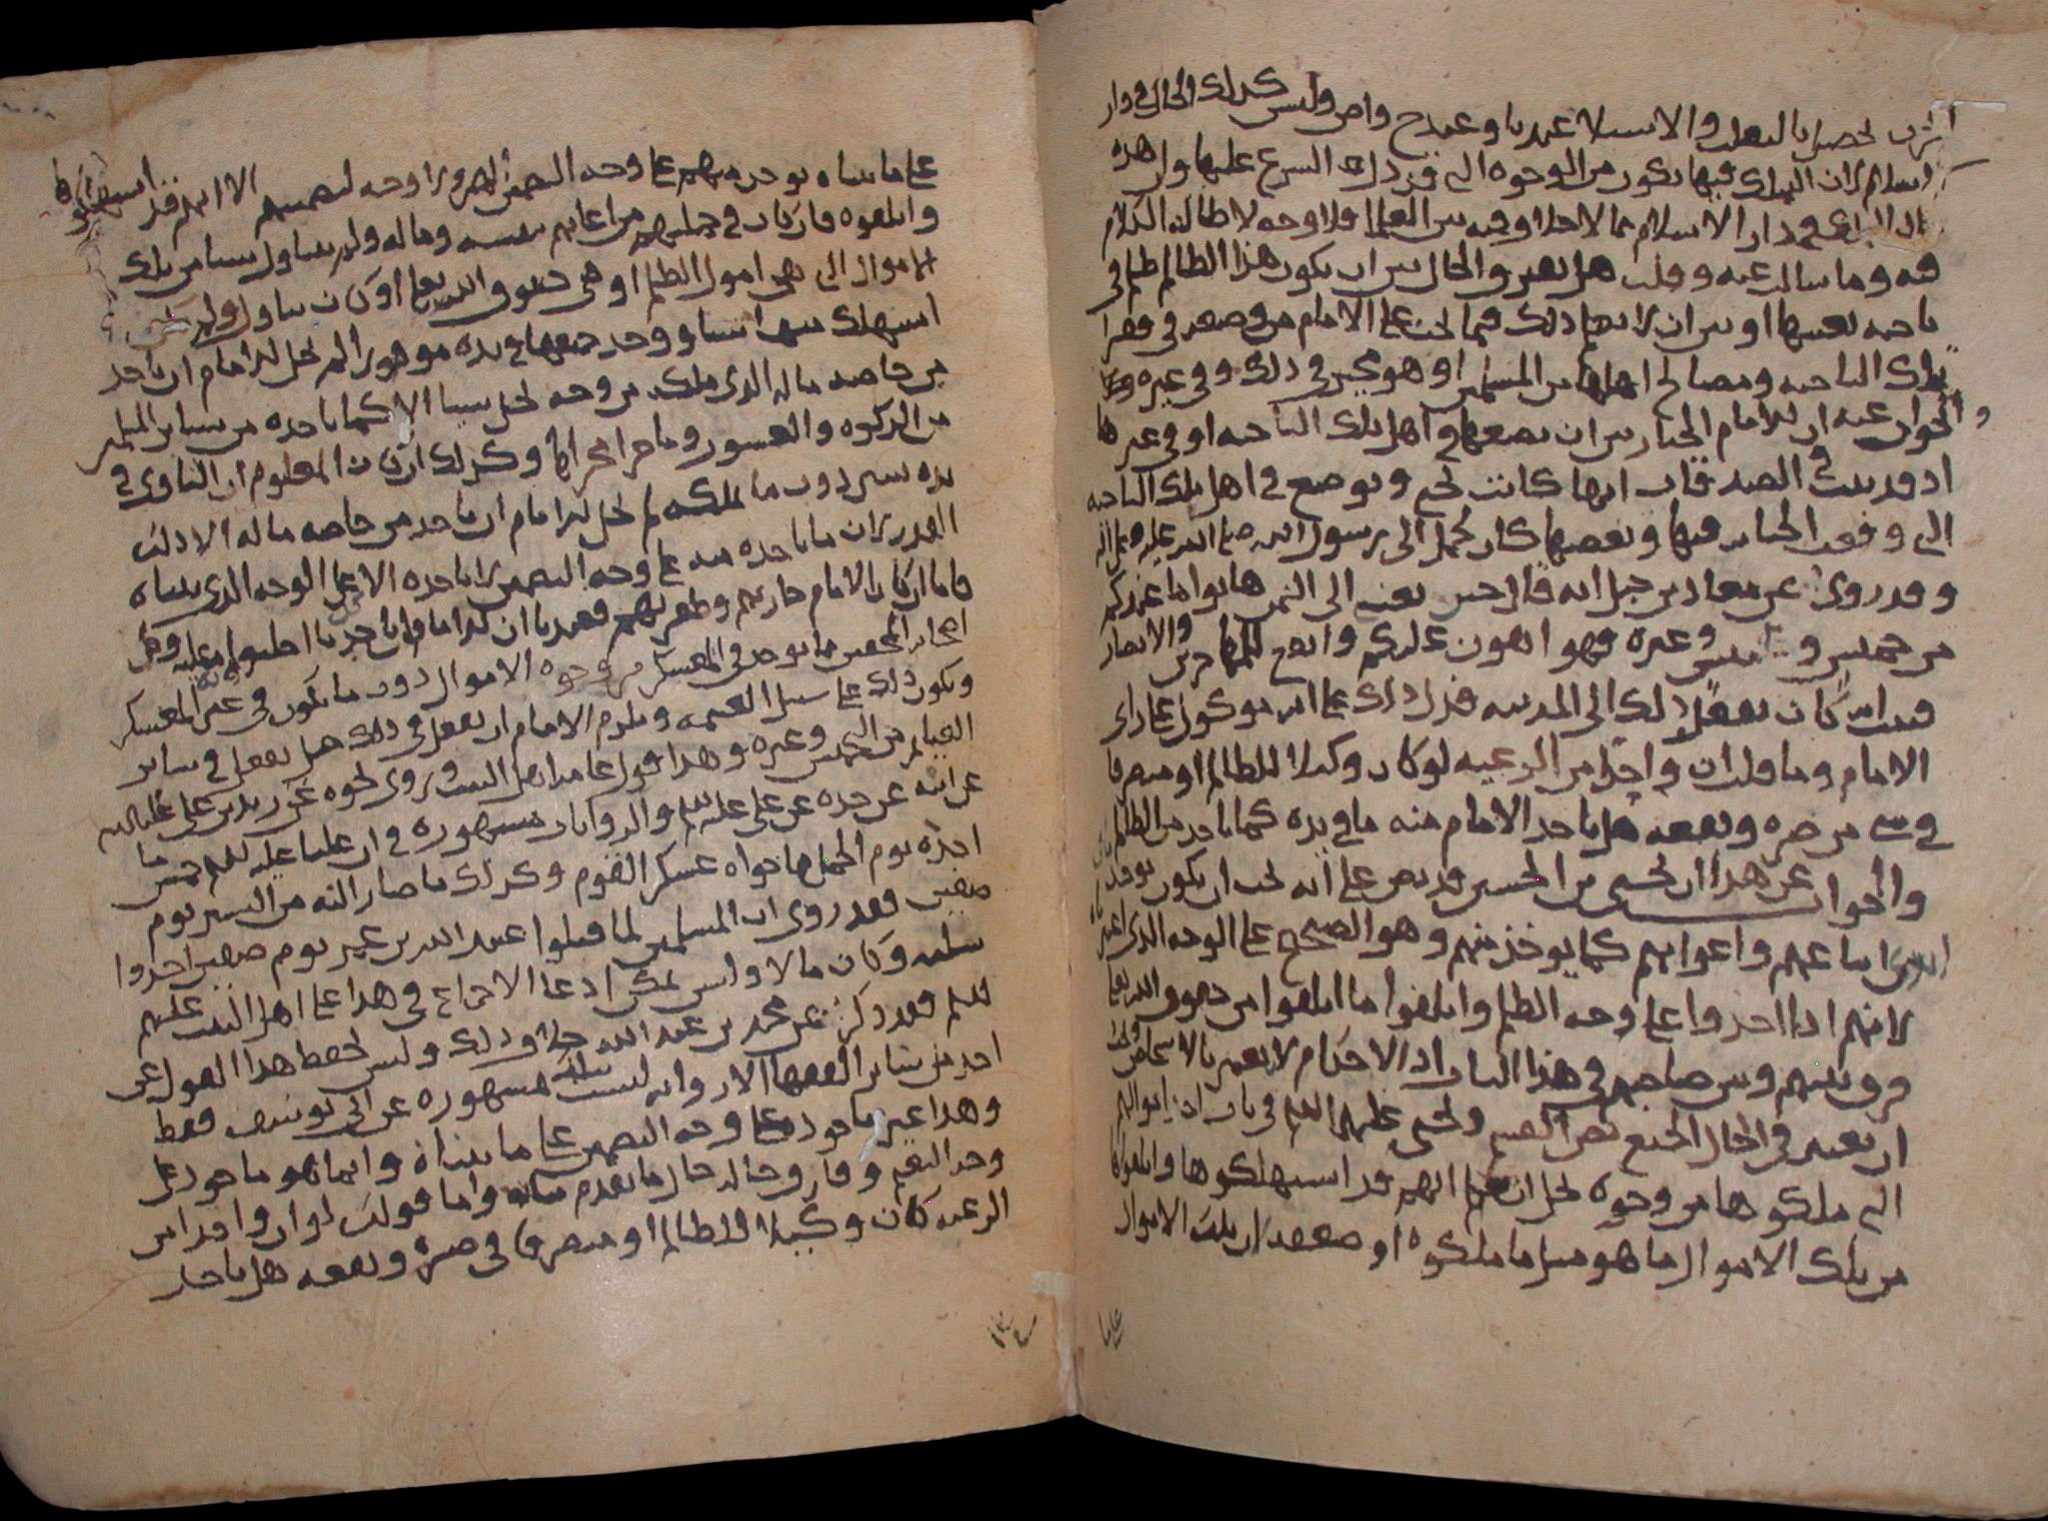 الحرب تحصل بالتغلب والاستيلا عندنا وعند ح وا ص وليس كذلك الحال في دار
الاسلام لان التملك فيها يكون من الوجوه التي قد دل الشرع عليها وان هذه
في دار الاسلام مما لا خلاف فيه بين العلما فلا وجه لاطالة الكلام
فيه وما سالت عنه وقلت هل يفترق الحال بين ان يكون هذا الظالم ظلم في
ناحية بعينها او بين ان لا يتها ذلك فيما يجب على الامام من وضعه في فقرا
تلك الناحية ومصالح اهلها من المسلمين او هو مخير في ذلك وفي غيره
والجواب عنه ان للامام الخيار بين ان يضعها في اهل تلك الناحية او في غيرها
اذ قد يثبت في الصدقات انها كانت تجبى وتوضع في اهل تلك الناحية
التي وقعت الجباية فيها وبعضها كان يحمل الى رسول الله صلى الله عليه وعلى اله
وقد روي عن معاذ بن جبل انه قال حين بعثه الى اليمن هاتوا ما عندكم
من خميس و وغيره فهو اهون عليكم وانفع للمهاجرين والانصار
فبين انه كان يفعل ذلك الى المدينة فدل ذلك على انه موكول على راي
الامام وما قلت ان واحدا من الرعية لو كان وكيلا للظالم او متصرفا
في شي من ضره ونفعه هل ياخذ الامام منه ما في يده كما ياخذ من الظالم
والجواب عن هذا ان يحيى بن الحسين قد نص على انه يجب ان يكون يوخذ
من اتباعهم واعوانهم كما يوخذ منهم وهو الصحيح على الوجه الذي
لانهم اذا اخذوا على وجه الظلم واتلفوا ما اتلفوا من حقوق الله تعالى
فرق بينهم وبين صاحبهم في هذا الباب اذ الاحكام لا تتغير بالاشخاص
ان يعتبر في الحال الجميع
التي ملكوها من وجوه تحل ان يعلم انهم قد استهلكوها واتلفوا
من تلك الاموال ما هو مثل ما ملكوه او ضعفه لان تلك الاموال
على ما بيناه يوخذ منهم على وجه التضمين لهم ولا وجه لتضمينهم الا انهم قد استهلكوها
واتلفوه فان كان في جملتهم من اعانهم بنفسه وماله ولم يتناول شيا من تلك
الاموال التي هي اموال الظلم او هي حقوق الله تعالى او كان تناول ولم يكن
استهلك منها شيا ووجد جميعها في يده موفورا لم يحل للامام ان ياخذ
من خاصة ماله الذي ملكه من وجه يحل شيا الا كما ياخذه من سائر المسلمين
من الزكوة والعشور وما جرا مجراها وكذلك ان كان المعلوم ان الباقي في
يده يسير دون ما يملكه لم يحل للامام ان ياخذ من خاصة ماله الا ذلك
القدر لان ما ياخذه منه على وجه التضمين لا ياخذه الا على الوجه الذي بيناه
فاما ان كان الامام حاربهم وظفر بهم فعندنا ان للامام ان ياخذ ما اجلبوا به عليه وهو
اعني المحقين ما يوجد في المعسكر من وجوه الاموال دون ما يكون في غير المعسكر
ويكون ذلك على سبيل الغنيمة ويلزم الامام ان يفعل في ذلك مثل يفعل في سائر
الغنائم من الخمس وغيره وهذا قول علما اهل البيت وروي نحوه عن زيد بن علي عليه السلام
عن ابيه عن جده عن علي عليه السلم والروايات مشهورة في ان عليا عليه السلم خمس ما
اخذه يوم الجمل مما حواه عسكر القوم وكذلك ما صار اليه من اليسير يوم
صفين فقد روي ان المسلمين لما قتلوا عبيد الله بن عمر يوم صفين اخذوا
سلبه وكان مالا وليس يمكن ادعا الاجماع في هذا على اهل البيت عليهم
السلم فقد ذكر عن محمد بن عبد الله خلاف ذلك وليس يحفظ هذا القول عن
احد من سائر الفقها الا رواية ليست بمشهورة عن ابي يوسف فقط
وهذا غير ماخوذ على وجه التضمين على ما بيناه وانما هو ماخوذ على
وجه الغنم وفارق حاله حال ما تقدم بيانه واما قولك لو ان واحدا من
الرعية كان وكيلا للظالم او متصرفا في ضره ونفعه هل ياخذ